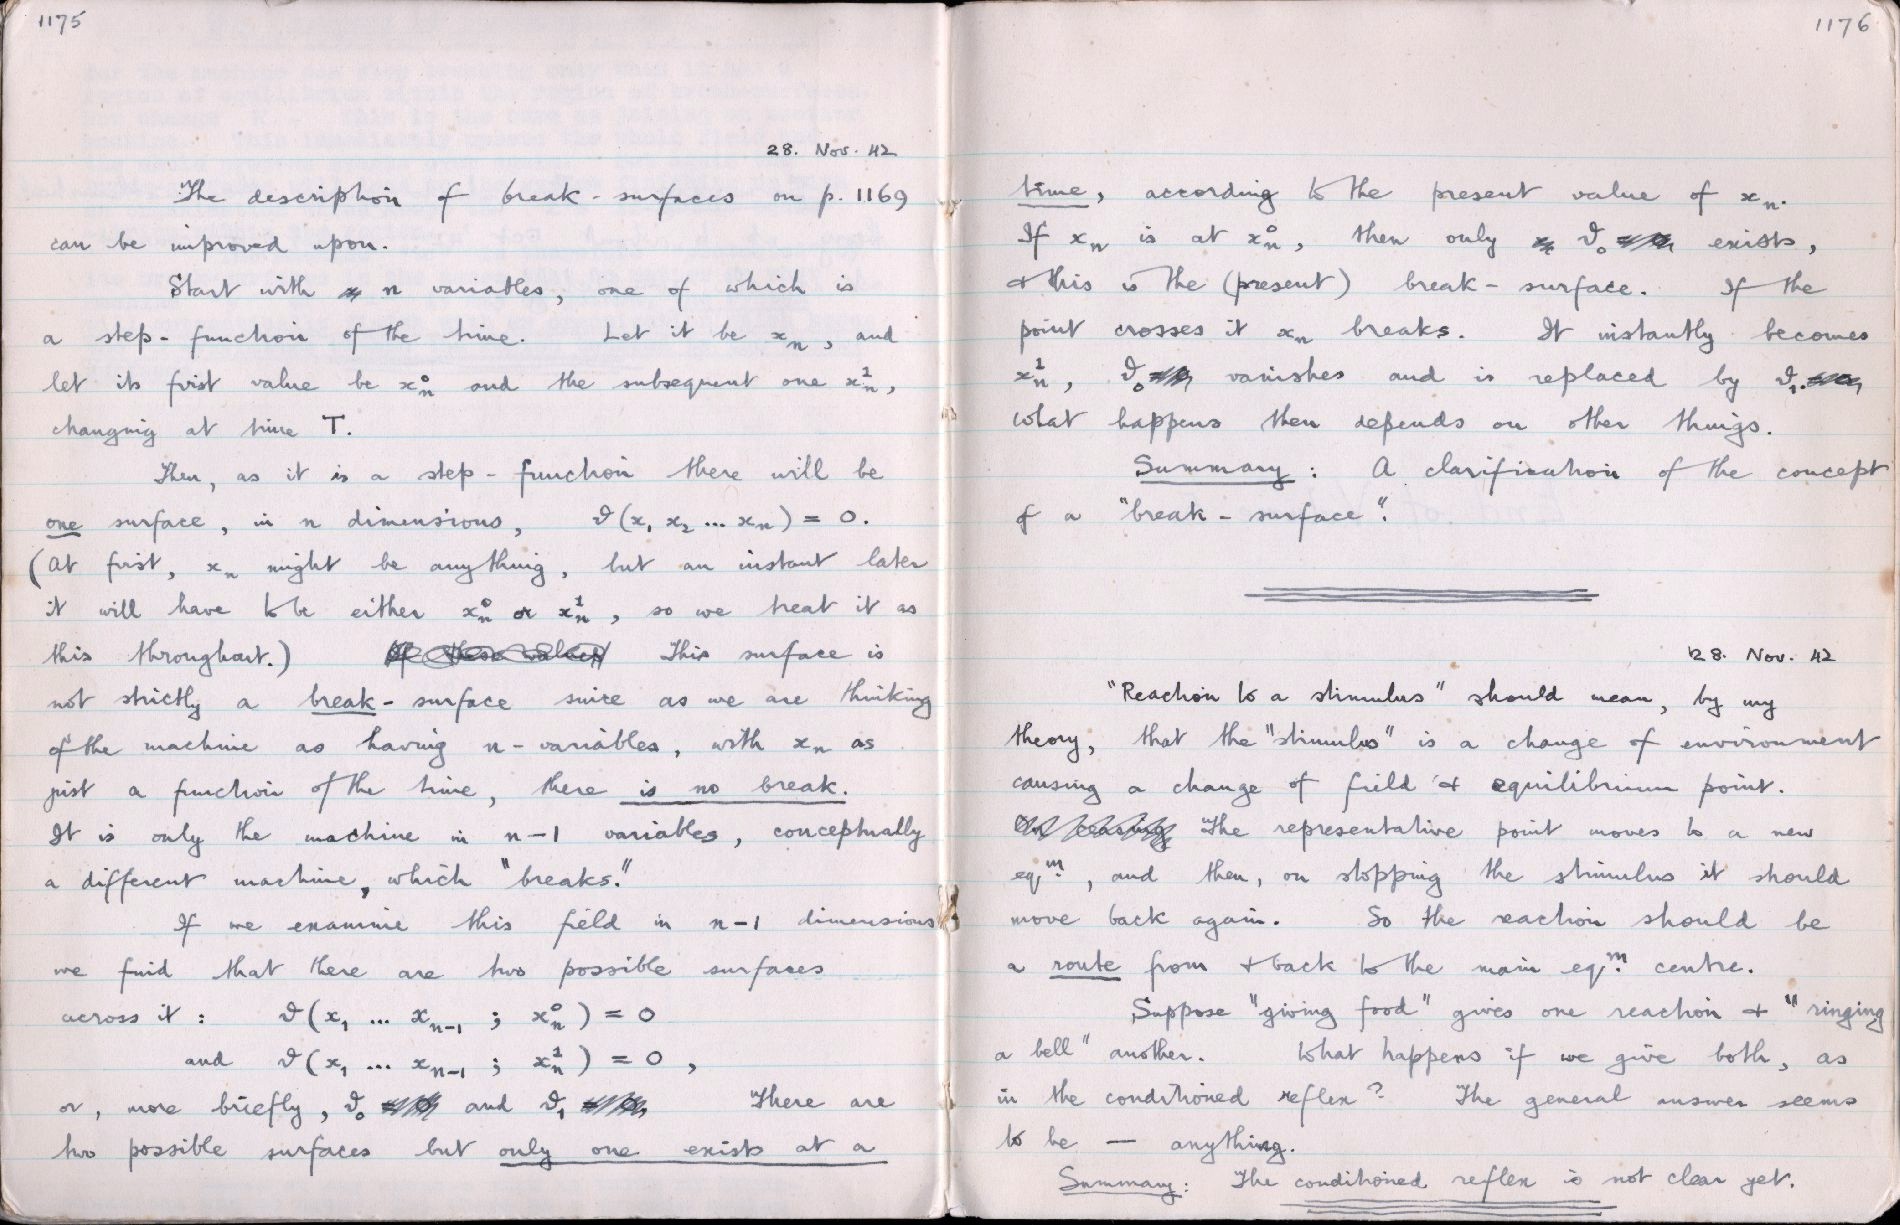 1175
28. Nov. 42
The description of break-surfaces on p. 1169
can be improved upon.
Start with n variables, one of which is
a step-function of the time. Let it be xₙ, and
let its first value be xₙ⁰ and the subsequent one xₙ¹,
changing at time T.
Then, as it is a step-function there will be
one surface, in n dimensions, ϑ(x₁ x₂ ... xₙ) = 0.
(At first, xₙ might be anything, but an instant later
it will have to be either xₙ⁰ or xₙ¹, so we treat it as
this throughout.) This surface is
not strictly a break-surface since as we are thinking
of the machine as having n-variables, with xₙ as
just a function of the time, there is no break.
It is only the machine in n-1 variables, conceptually
a different machine, which "breaks."
If we examine this field in n-1 dimensions
we find that there are two possible surfaces
across it: ϑ(x₁ ... xₙ₋₁ ; xₙ⁰) = 0
and ϑ(x₁ ... xₙ₋₁ ; xₙ¹) = 0,
or, more briefly, ϑ₀ and ϑ₁ There are
two possible surfaces but only one exists at a
1176
time, according to the present value of xₙ.
If xₙ is at xₙ⁰, then only ϑ₀ exists,
& this is the (present) break-surface. If the
point crosses it xₙ breaks. It instantly becomes
xₙ¹, ϑ₀ vanishes and is replaced by ϑ₁.
What happens then depends on other things.
Summary: A clarification of the concept
of a "break-surface".
28. Nov. 42
"Reaction to a stimulus" should mean, by my
theory, that the "stimulus" is a change of environment
causing a change of field & equilibrium point.
The representative point moves to a new
eqᵐ., and then, on stopping the stimulus it should
move back again. So the reaction should be
a route from & back to the main eqᵐ. centre.
Suppose "giving food" gives one reaction & "ringing
a bell" another. What happens if we give both, as
in the conditioned reflex? The general answer seems
to be — anything.
Summary: The conditioned reflex is not clear yet.